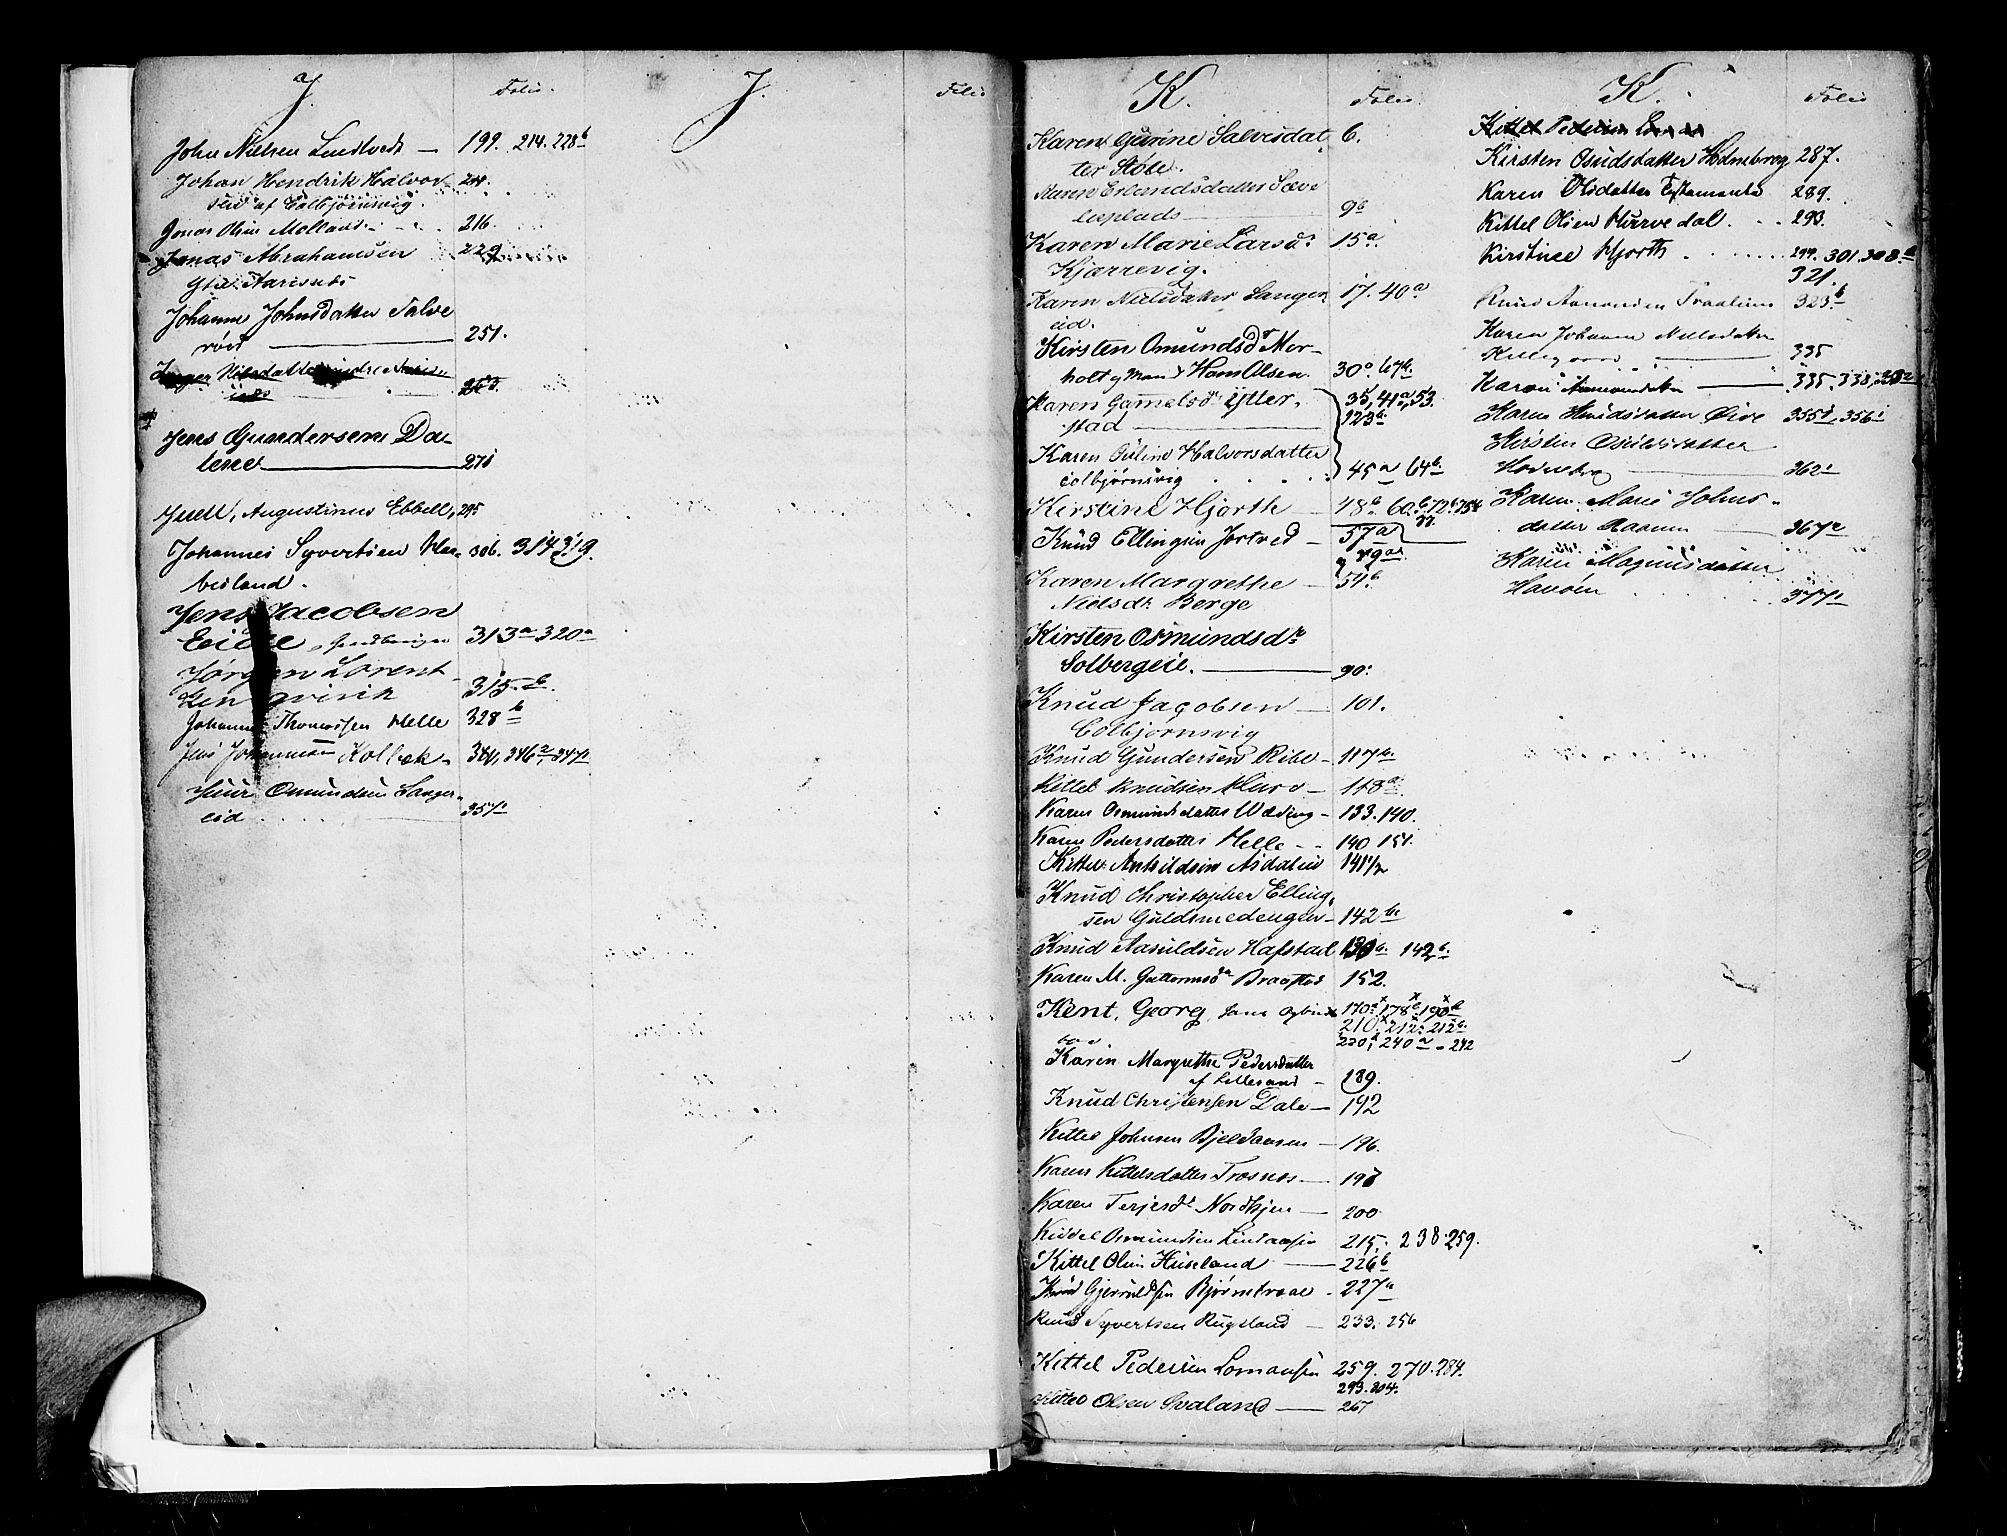 J. Folio.
John Nielsen Lindtvedt — 199. 214. 228b
Johan Hendrik Halvor-
sen af Colbjørnsvig.
Jonas Olsen Molland 216.
Jonas Abrahamsen 229
Johanne Johnsdatter Salve
røed — 251.
Jens Gundersen Da-
lene — 275
Jesell, Augustinus Ebbell, 295
Johannes Syvertsen Hæ- 306. 314 319.
besland.
Jens Jacobsen
Eide, 313a 320a
Jørgen Lorent-
sen 315 b.
Johannes Thomassen Helle 328 b
Jens Johannessen Kolbæk 344, 346a, 347a
Osmundsen Langer-
eid 357a
J. Folio
K. Folio.
Karen Gurine Salvesdat- 6.
ter Stole.
Karen Erlandsdatter Sæve
lieplads — 9b
Karen Marie Larsd. 15a.
Kjærrevig.
Karen Nielsdatter Langer 17. 40a
eid.
Kirsten Omundsdr Mor-
holt og Mand Hans Olsen. 30a. 67b.
Karen Gamelsdr Ytter- 35, 41a, 53.
stad — 123b.
Karen Oline Halvorsdatter
Colbjørnsvig 45a 64b.
Kirstine Hjorth — 48b. 60b. 72b. 75
Knud Ellingsen Jortved — 57a
79a
Karen Margrethe — 51b
Nielsdr. Berge
Kirsten Osmundsdr
Solbergeie. — 90.
Knud Jacobsen — 101.
Colbjørnsvig
Knud Gundersen Ribe — 117b.
Kittel Knudsen — 118a.
Karen Osmundsdatter — 133. 140.
Karen Pedersdatter Helle — 140 151.
Kittel 141 1/2
Knud Christopher Elling-
sen Guldsmedengen — 142b.
Knud Aasuldsen Hafstad 130b. 142b.
Karen M. Guttormsdr Braastad 152.
Kent, Georg, 170a 178b 190b
210. 212. 212b.
220, 240a - 242
Karen Margrethe Pedersdatter
af Lillesand — 189.
Knud Christensen Dale — 192
Kittel Johnsen Bjeldaasen — 196.
Karen Kittelsdatter Træsnes — 198
Karen Terjesdr Nordhjen — 200
Kiddel Osmundsen Lindaasen 215. 238. 259.
Kittel Olsen Huseland — 226b
Knud Gjeruldsen Bjørntraae - 227a
Knud Syvertsen Rugsland — 233. 256
Kittel Pedersen Lomaasen 259. 270. 284.
293. 304.
Kittel Olsen Svaland — 267
K. Folio
Kirsten Osuldsdatter Holmebrog 287.
Karen Olsdatter Testamente 289.
Kittel Olsen Hurvedal. 293.
Kirstine Hjorth 299. 301. 308.a
321.
Knud Aanonsen Traalum 323b
Karen Johanne Nielsdatter
335
Karen Aanonsdatter — 335. 338.
Karen Øvre 355a, 356a
Kirsten Osuldsdatter
Holmebrog — 362a
Karen Marie Johns-
datter — 367a
Karen Magnusdatter
Havøen 377a